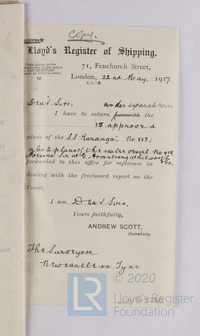 Copy.
Lloyd's Register of Shipping,
71, Fenchurch Street,
London, 22nd May, 1917
E.C.3.
Dear Sirs,
under separate cover
I have to return herewith the
15 approved
plans of the S.S. "Karanga", No. 223;
forwarded to this office for reference in
dealing with the freeboard report on the
Vessel.
I am, Dear Sirs,
Yours faithfully,
ANDREW SCOTT,
Secretary.
The Surveyors,
Newcastle on Tyne
© 2020
LR
Lloyd's Register
Foundation